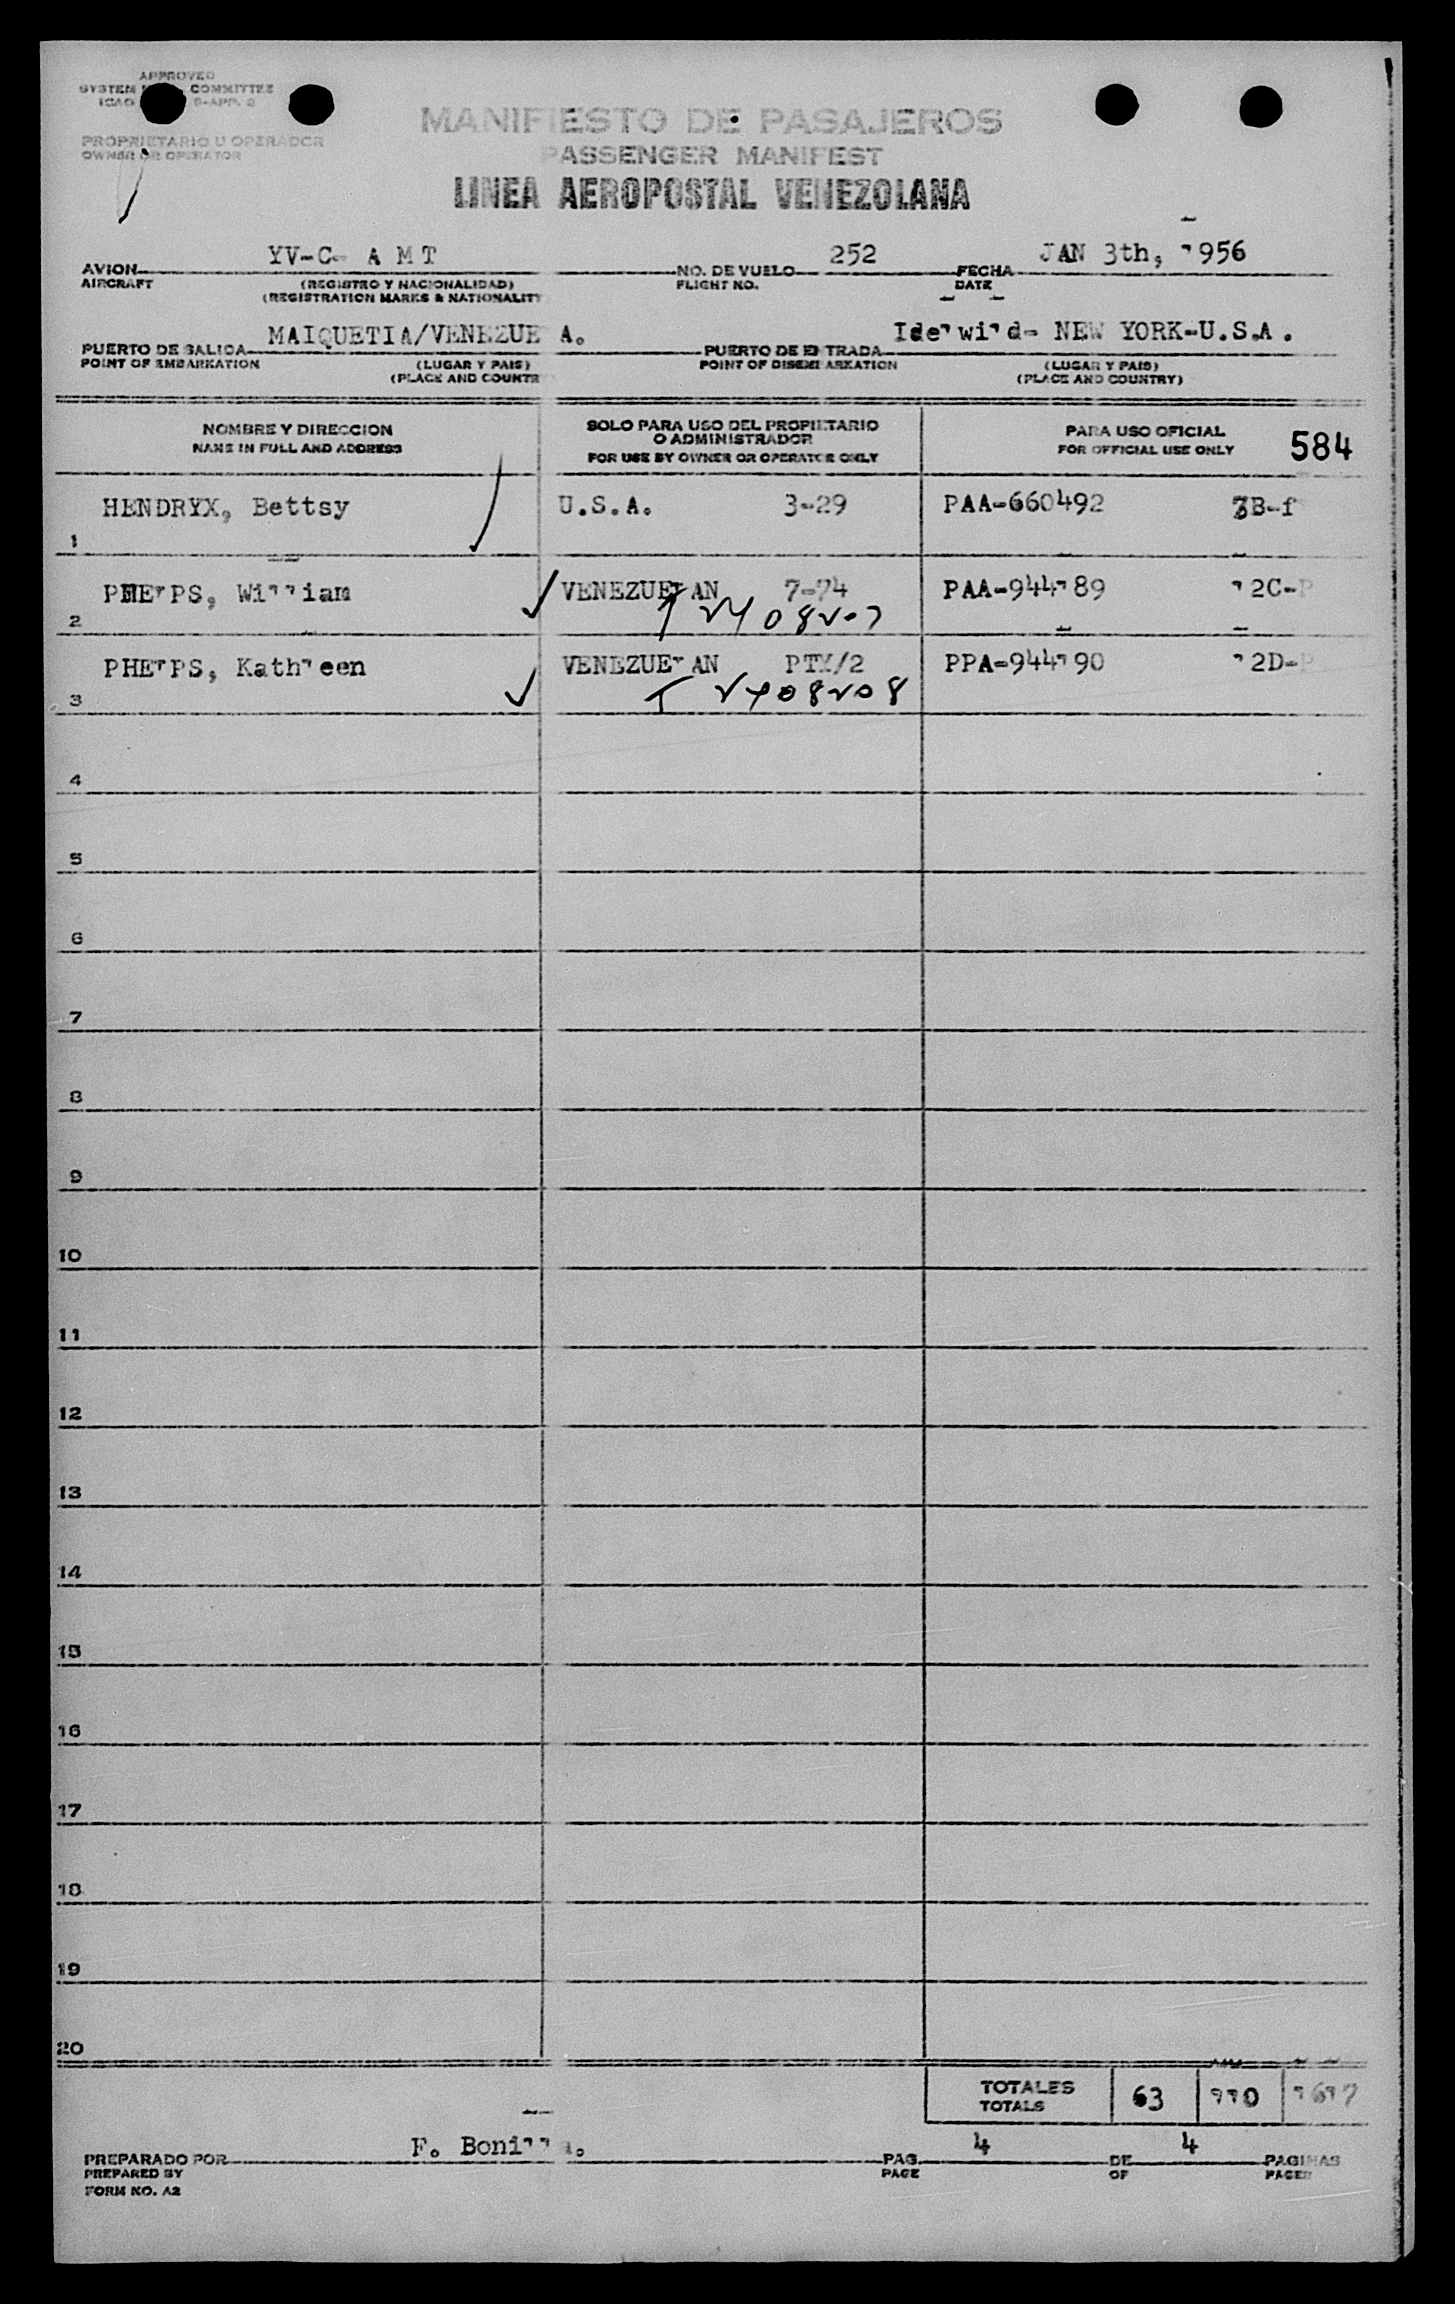 APPROVED
SYSTEM COMMITTEE
ICAO 9-APP. 2
PROPRIETARIO U OPERADOR
OWNER OR OPERATOR
MANIFIESTO DE PASAJEROS
PASSENGER MANIFEST
LINEA AEROPOSTAL VENEZOLANA
YV-C- A M T 252 JAN 3th, 1956
AVION NO. DE VUELO FECHA
AIRCRAFT (REGISTRO Y NACIONALIDAD) FLIGHT NO. DATE
(REGISTRATION MARKS & NATIONALITY
MAIQUETIA/VENEZUE A. Idelwild- NEW YORK-U.S.A.
PUERTO DE SALIDA PUERTO DE ENTRADA
POINT OF EMBARKATION (LUGAR Y PAIS) POINT OF DISEMBARKATION (LUGAR Y PAIS)
(PLACE AND COUNTR (PLACE AND COUNTRY)
NOMBRE Y DIRECCION SOLO PARA USO DEL PROPIETARIO O ADMINISTRADOR PARA USO OFICIAL 584
NAME IN FULL AND ADDRESS FOR USE BY OWNER OR OPERATOR ONLY FOR OFFICIAL USE ONLY
1 HENDRYX, Bettsy U.S.A. 3-29 PAA-660492 3B-f
2 PHELPS, William VENEZUELAN 7-74 PAA-944189 12C-P
3 PHELPS, Kathleen VENEZUELAN PTY/2 PPA-944190 12D-P
T V408208
4
5
6
7
8
9
10
11
12
13
14
15
16
17
18
19
20
TOTALES 63 110
TOTALS
F. Bonilla. 4 4
PREPARADO POR PAG. DE PAGINAS
PREPARED BY PAGE OF PAGES
FORM NO. A2